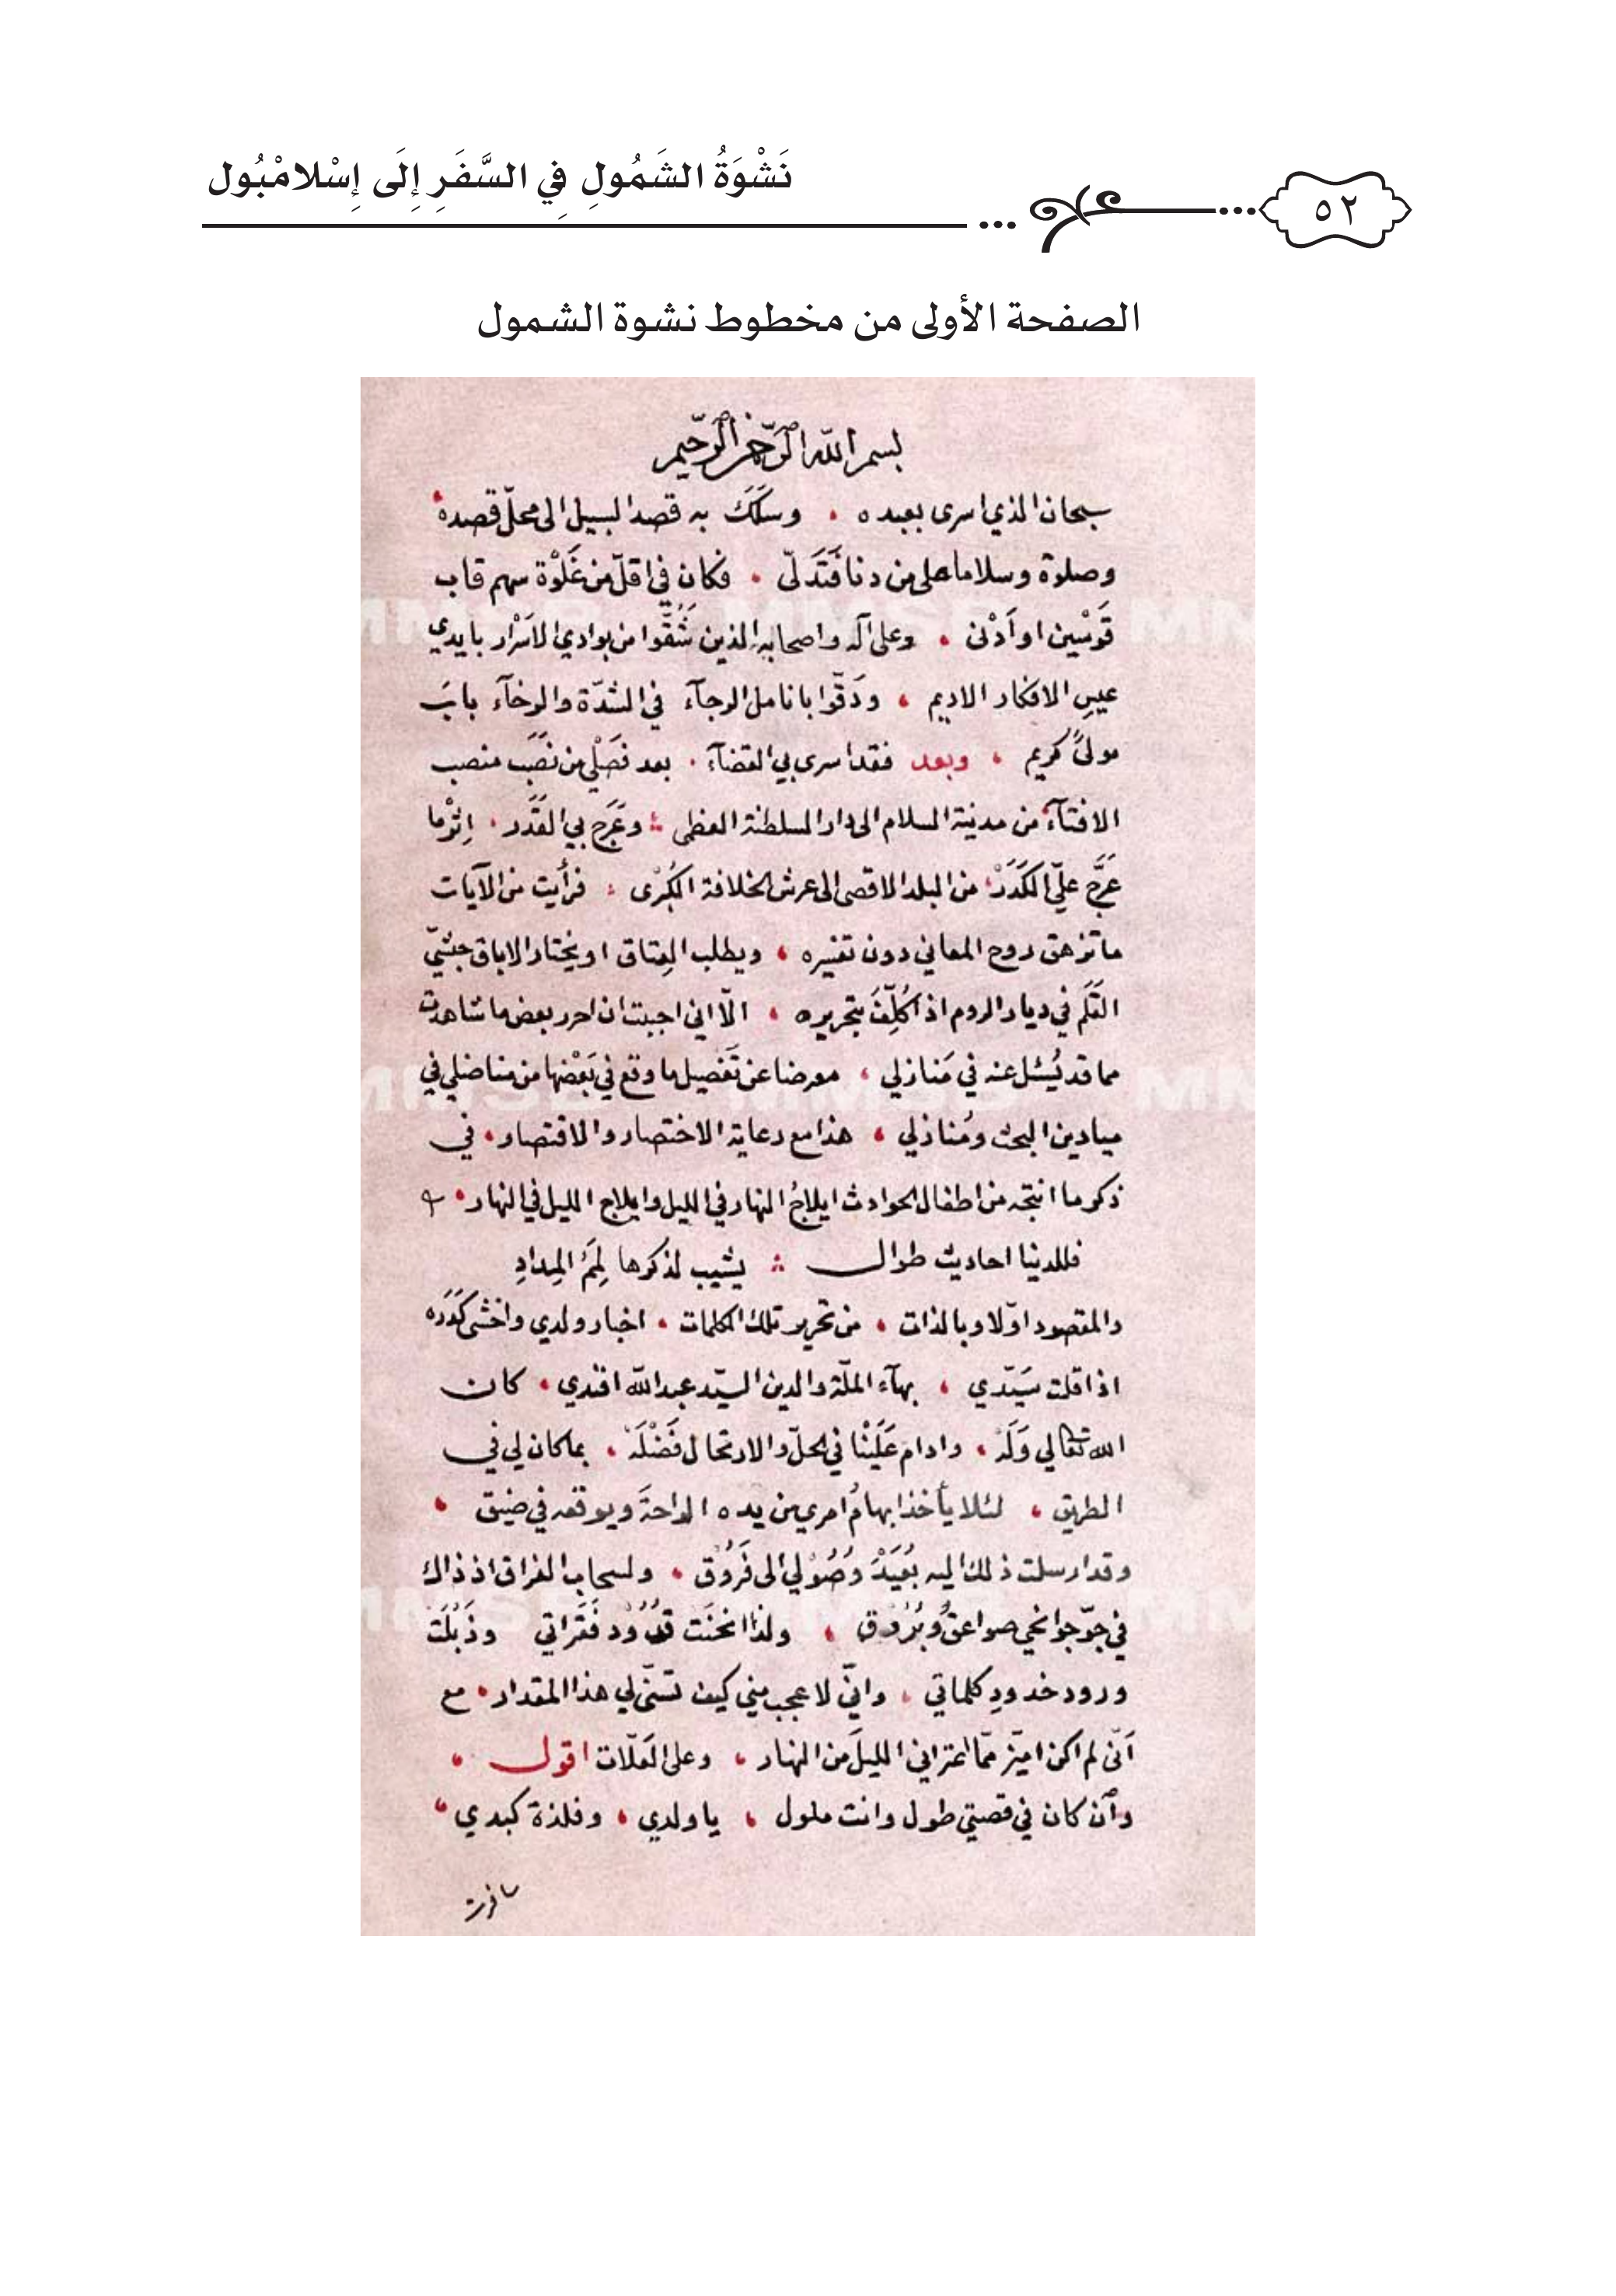 نَشْوَةُ الشَمُولِ فِي السَّفَرِ إِلَى إِسْلامْبُول
٥٢
الصفحة الأولى من مخطوط نشوة الشمول
بسم الله الرحمن الرحيم
سبحان الذي اسرى بعبده وسَلَكَ به قصد السبيل الى محلّ قصده
وصلوة وسلاما على من دنا فَتَدَلّى فكان في اقلّ من غَلْوَة سهم قاب
قَوْسَين او اَدْنى وعلى آله واصحابه الذين شُقُّوا من بوادي الاَسْرار بايدي
عيسِ الافكار الاديم ودَقّوا بانامل الرجآء في الشدّة والرخآء بابَ
مولىً كريم وبعد فقد اسرى بي القضآء بعد فَصْلي من نَصَب منصب
الافتآء من مدينة السلام الى دار السلطنة العظمى وعَرَج بي القَدَر اِثْرما
عَرَّج عليّ الكَدَر من البلد الاقصى الى عرش الخلافة الكُبْرى فرأيت من الآيات
ما تزهق روح المعاني دون تفسيره ويطلب العِتاق او يختار الاباق حبشيّ
القَلَم في ديار الروم اذ اُكَلِّفُ بتحريره الّا اني احببت ان احرر بعض ما شاهدت
مما قد يُسْئل عنه في مَنازلي معرضا عن تَفْصيل ما وقع في بَعْضها من مناضلي في
ميادين البحث ومُنازلي هذا مع رعاية الاختصار والاقتصار في
ذكر ما انتجه من اطفال الحوادث ايلاجُ النهار في الليل وايلاج الليل في النهار
فللدنيا احاديث طوال يشيب لذكرها لِمَمُ المِدادِ
والمقصود اوّلا وبالذات من تحرير تلك الكلمات اخبار ولدي واخشى كَدَره
اذا قلت سَيّدي بهآء الملّة والدين السيّد عبد الله افندي كان
الله تعالى وَلَه وادام عَلَيْنا في الحلّ والارتحال فَضْلَه بما كان لي في
الطريق لئلا يأخذ ابهامُ امري من يده الراحةَ ويوقعه في ضيق
وقد ارسلت ذلك اليه بُعَيْدَ وُصُولي الى فَرُوْق ولسحاب الفراق اذ ذاك
في جوّ جوانحي صواعق وبُرُوْق ولذا انحنَت قُدُوْد فَقَراتي وذَبُلَت
ورود خدودِ كلماتي وانّي لاعجب مني كيف تسنّى لي هذا المقدار مع
اَنّي لم اكن اميّز ممّا اعتراني الليلَ من النهار وعلى العَلّات اقول
وَاْن كان في قصتي طول وانت ملول يا ولدي وفلذة كبدي
سافرت